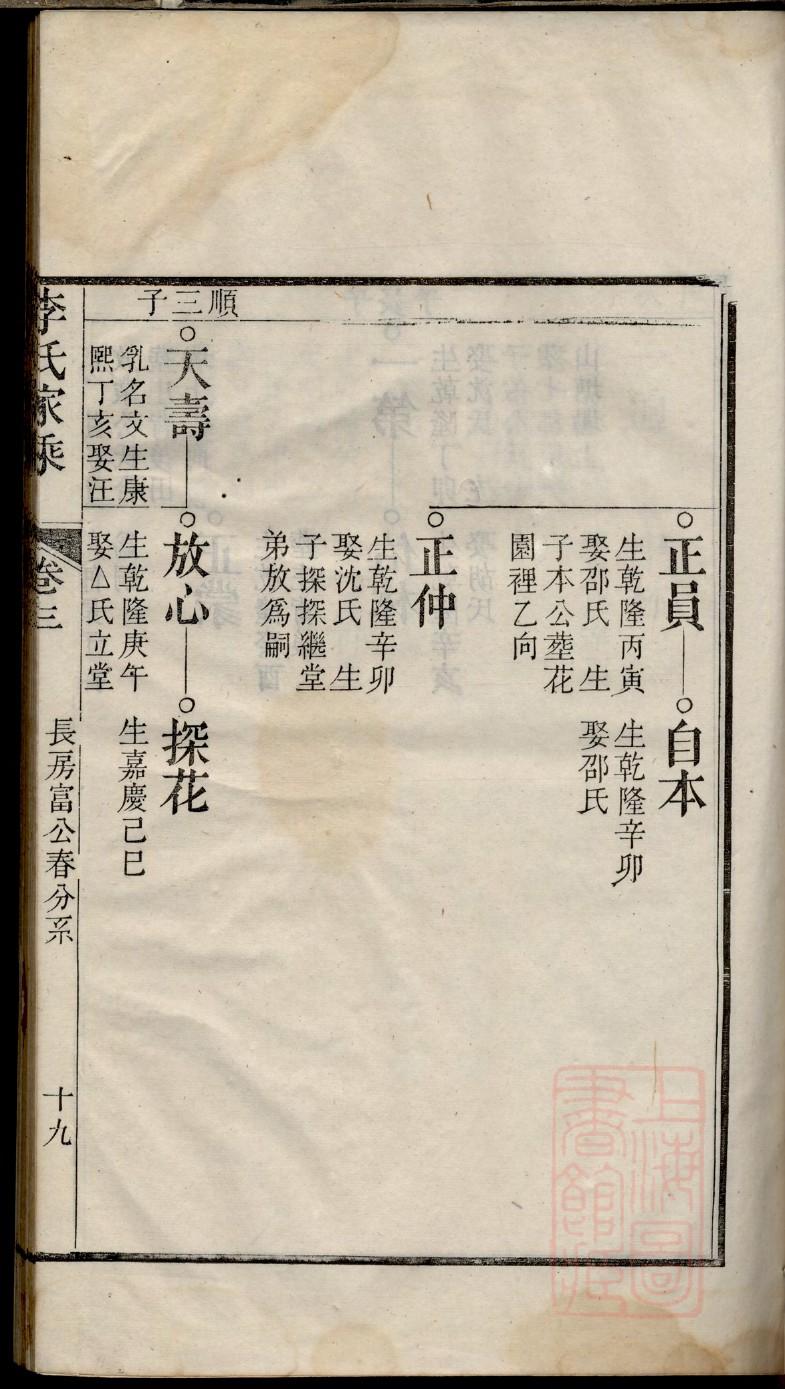 正員
生乾隆丙寅
娶邵氏 生
子本公塟花
園裡乙向
自本
生乾隆辛卯
娶邵氏
正仲
生乾隆辛卯
娶沈氏 生
子探探繼堂
弟放爲嗣
順三子
天壽
乳名文生康
熙丁亥娶汪
放心
生乾隆庚午
娶厶氏立堂
探花
生嘉慶己巳
李氏家乘
卷三
長房富公春分系
十九
上海圖
書館藏